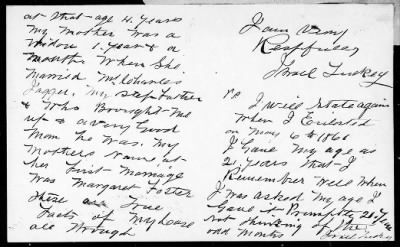 at that age 4 years
My Mother was a
Widow 1 year & a
months When She
Married Mr Charles
My Step Father
& Who Brought Me
up & a very Good
Man he was. My
Mothers Name at
her First Marriage
Was Margaret Foster
These are True
Facts of My Case
all through
I am Very
Respfully
Israel Luckey
PS
I will State again
When I Enlisted
on May 6th 1861
I Gave My age as
21 years that I
Remember Well When
I was asked My age I
Gave it Promptly 21 years
Not thinking of the
odd Months
Israel Luckey